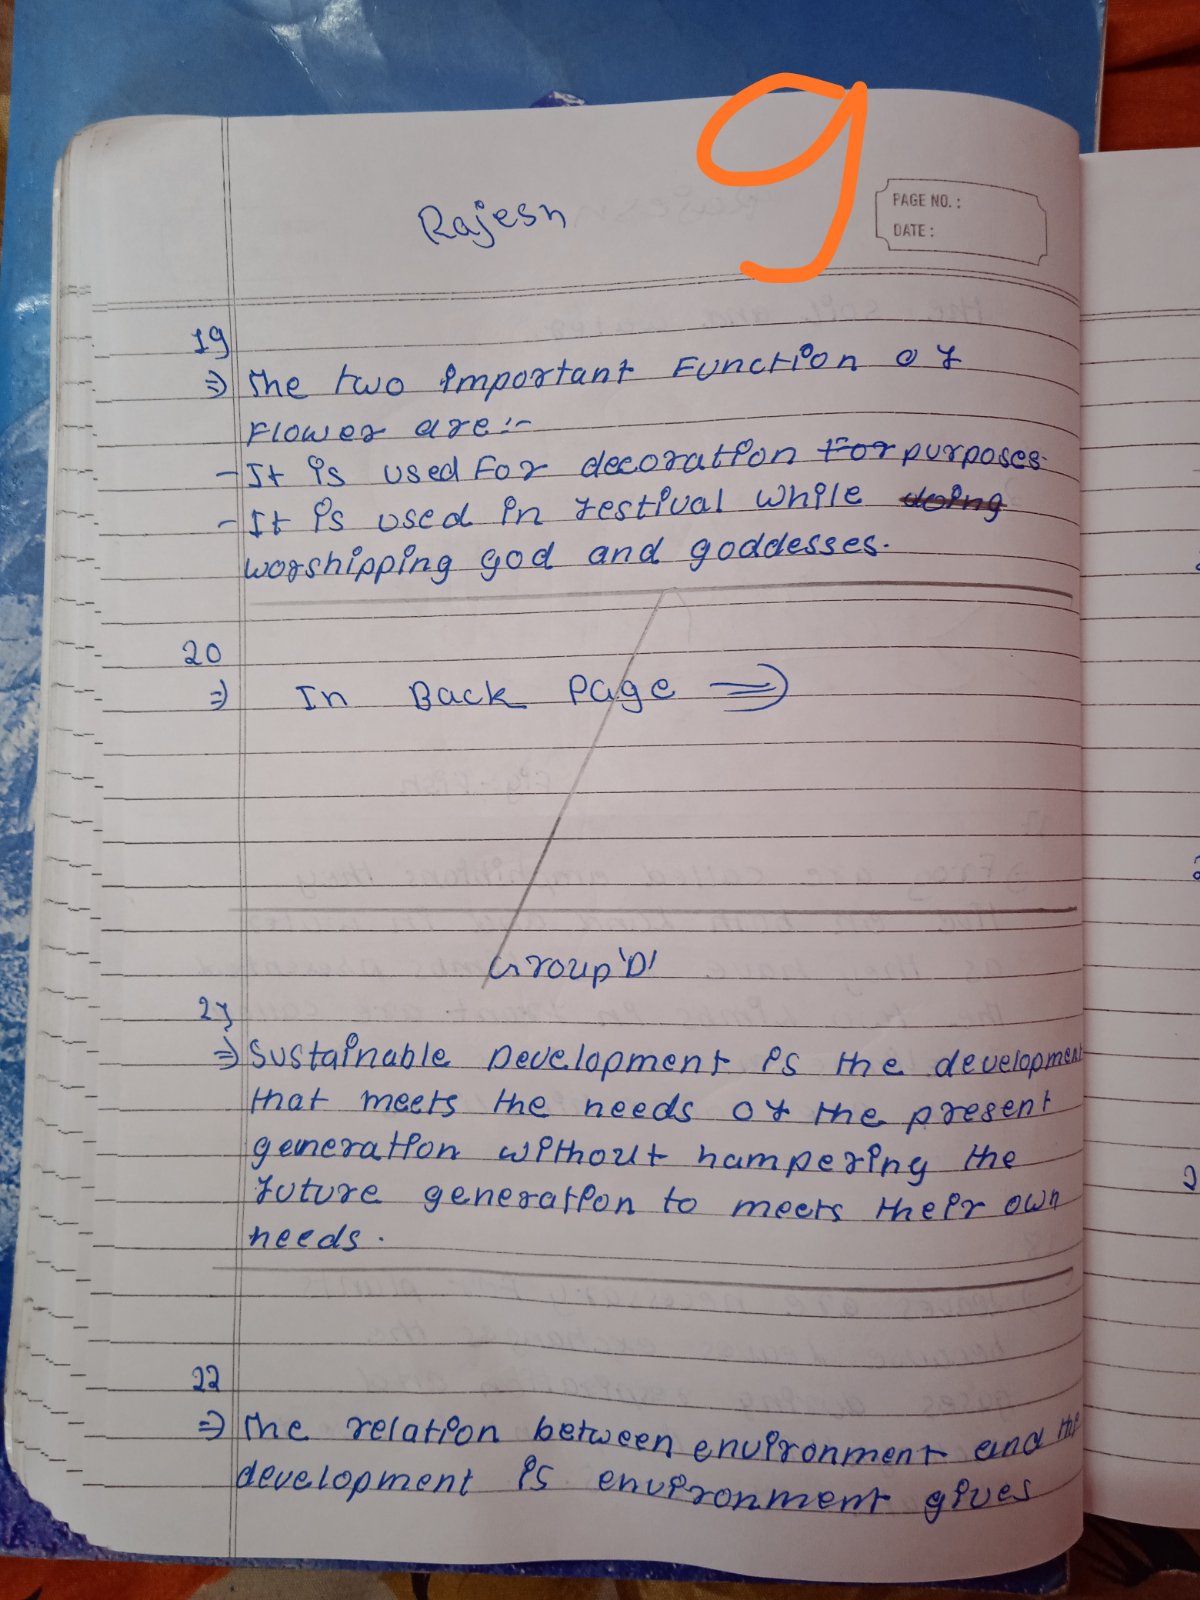 9
Rajesh
PAGE NO. :
DATE :
19
⇒ The two important Function of
Flower are :-
- It is used For decoration For purposes.
- It is used in festival while doing
worshipping god and goddesses.
20
⇒ In Back Page ⇒
Group 'D'
21
⇒ Sustainable Development is the development
that meets the needs of the present
generation without hampering the
future generation to meets their own
needs.
22
⇒ The relation between environment and the
development is environment gives